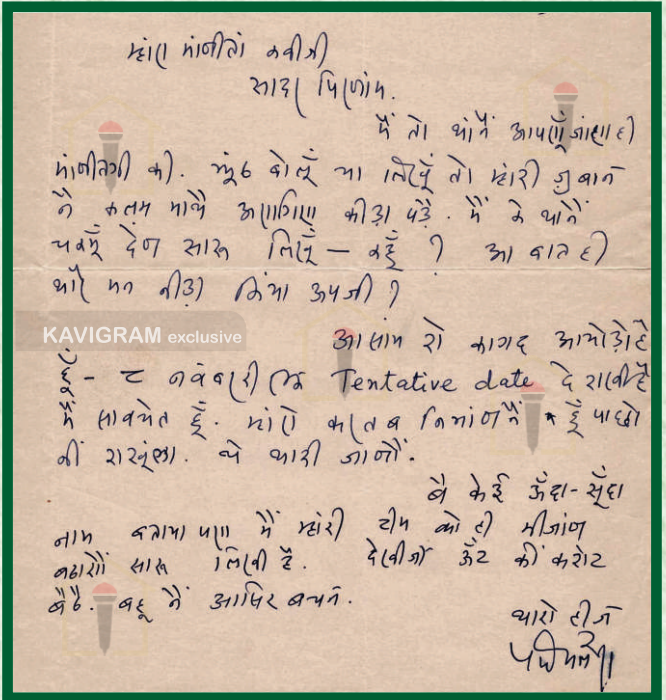 म्हांरा मांनीता कवीजी
सादर प्रिणांम.
मैं तो थांनैं आपणूं जांणा ही
मांनीतगी की. झूंठ बोलूँ या लिखूँ तो म्हांरी जुबान
नै कलम माथै अणगिण कीड़ा पड़ै. मैं के थांनैं
देण सारू लिखूँ — कहूँ ? आ बात ही
थांरै मन किंया ऊपजी ?
KAVIGRAM exclusive
आसांम रो कागद आयोड़ो है
८ नवंबर री Tentative date दे राखी है
मैं सावचेत हूँ. म्हांरो करतब हूँ पाछो
नीं राखूंला. थे थांरी जांणौं.
बै केई ऊँदा-सूँदा
नाम बताया पण मैं म्हांरी टीम को ही
सारू लिखी है. देखीजो ऊँट कीं करोट
बैठै. बहू नैं आसिर बचन.
थांरो हीज